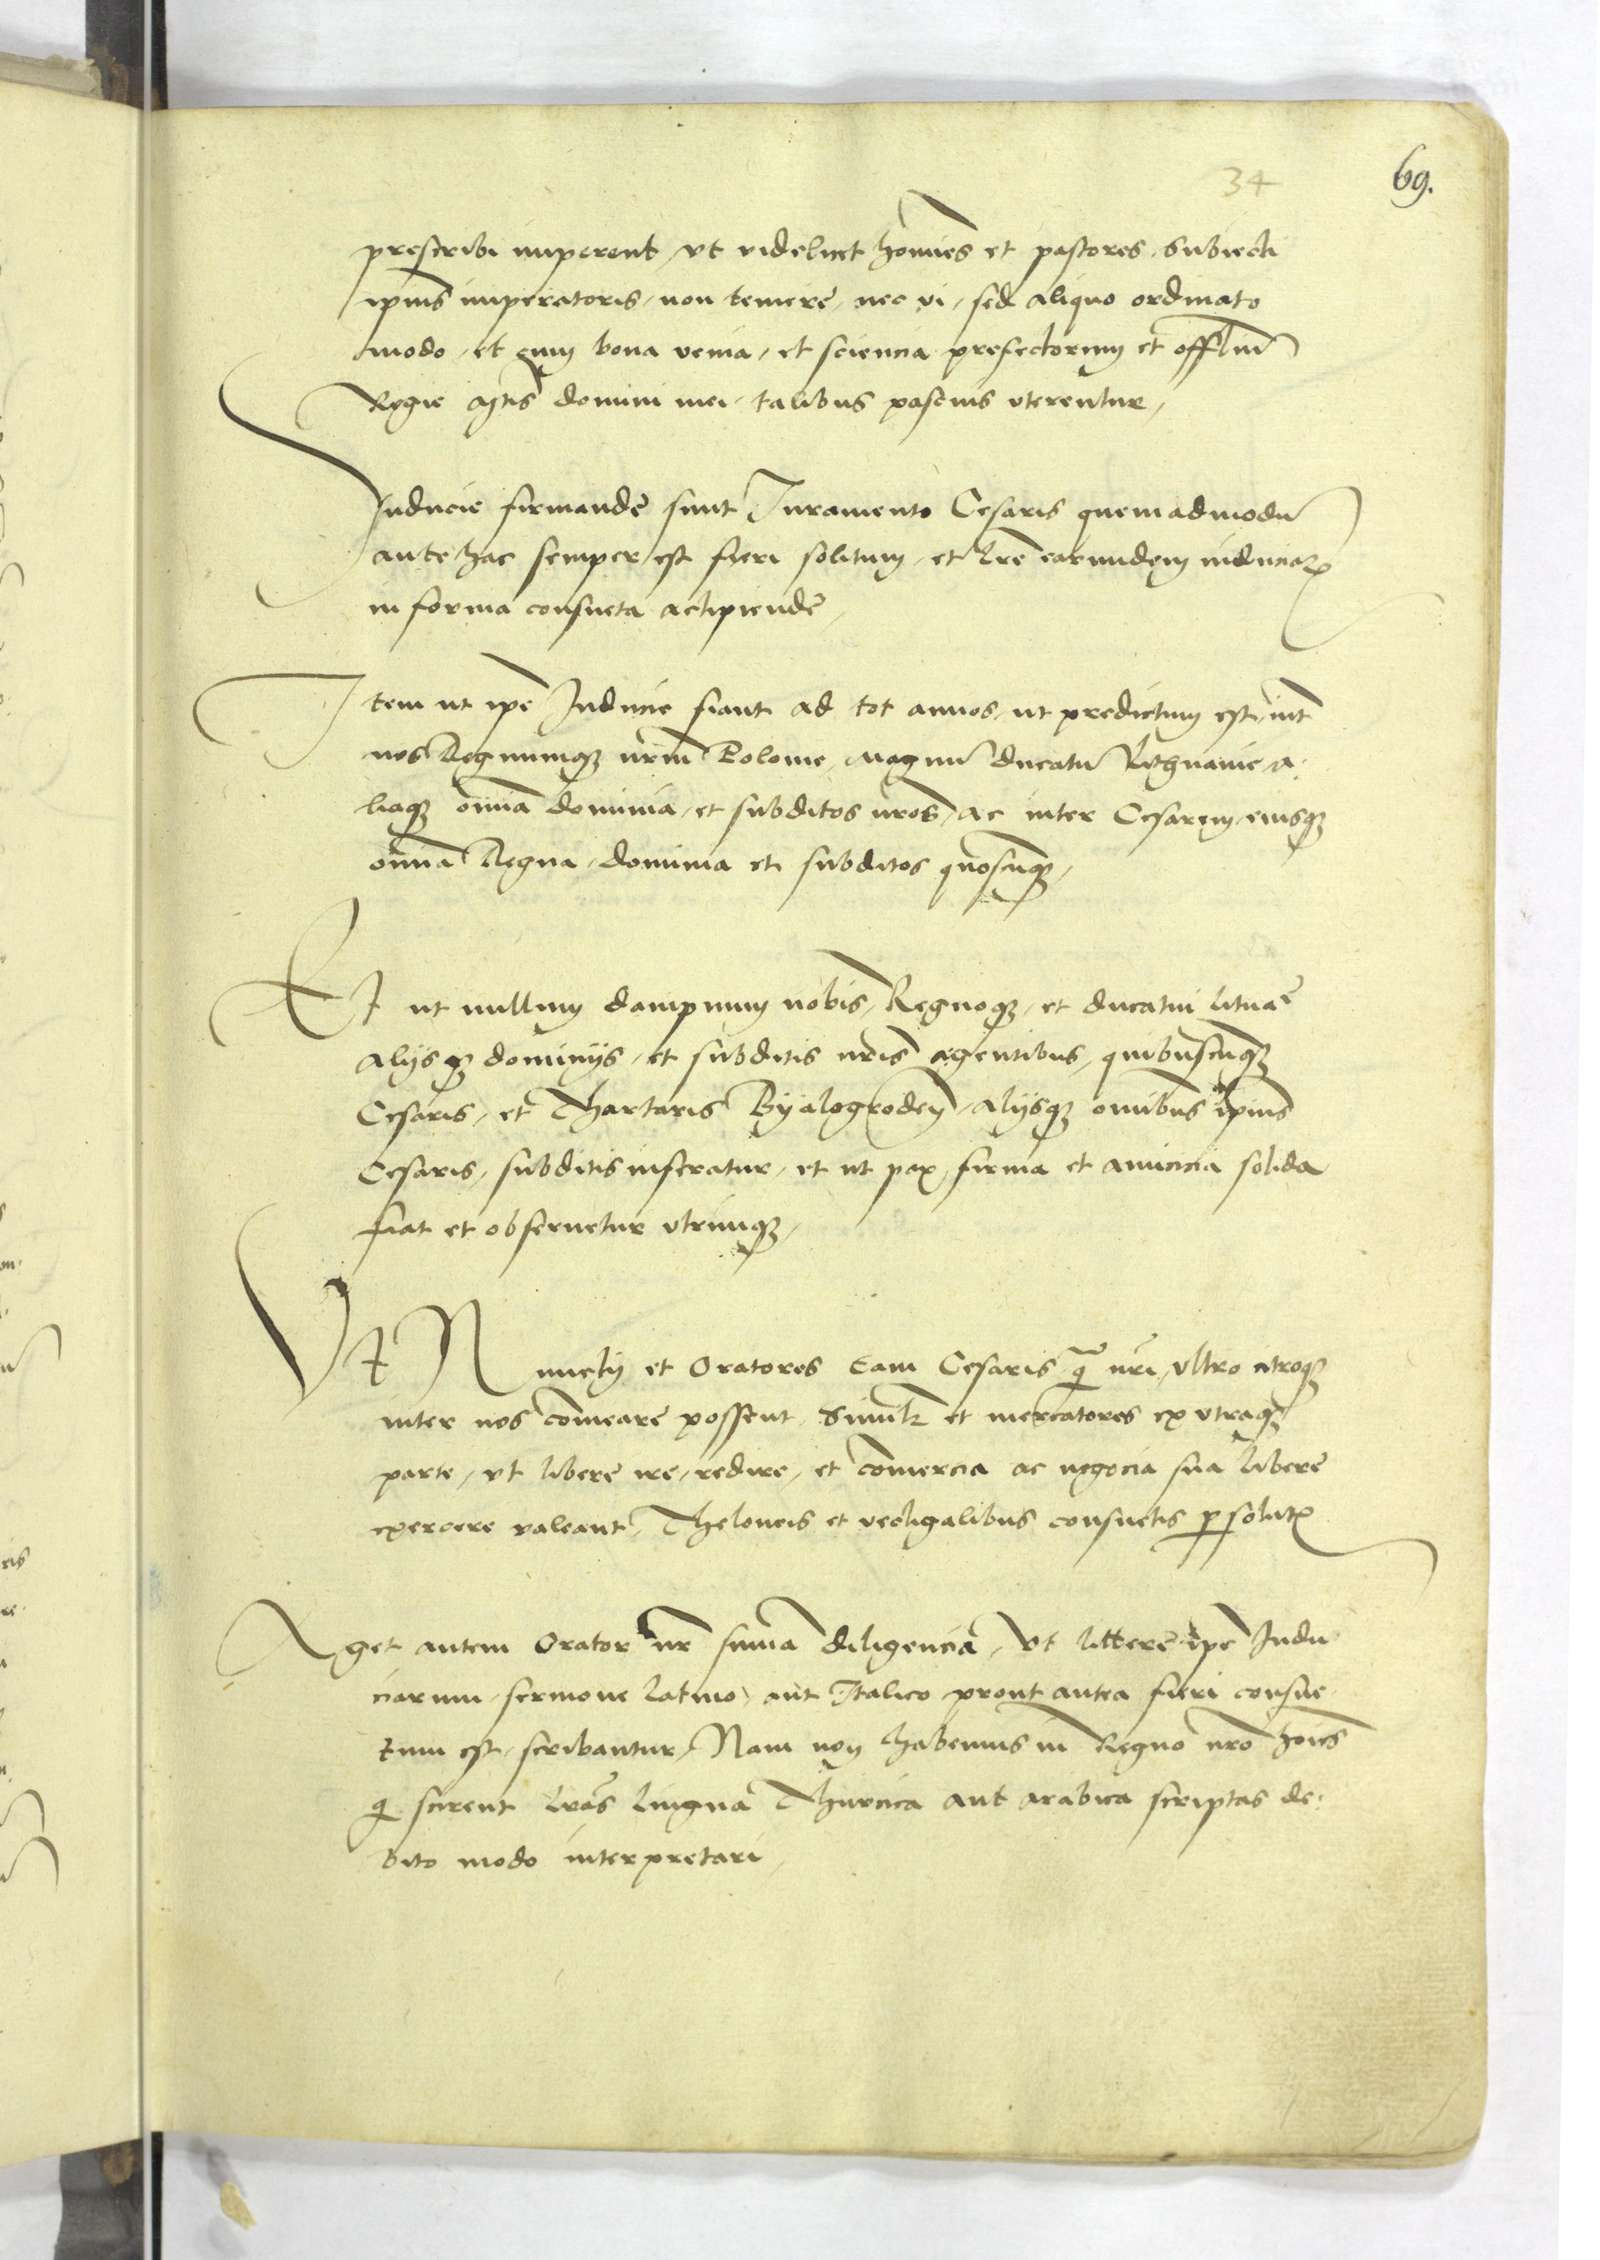 34 69.
prescribi imperent, vt videlicet homines et pastores, subiecti
ipius imperatoris, non temere, nec vi, sed aliquo ordinato
modo, et cum bona venia, et sciencia prefectorum et offlium
Regie Mtis domini mei, talibus pascuis vterentur,
Inducie firmande sunt Juramento Cesaris quemadmodu
ante hac semper est fieri solitum, et lre earundem induciar
in forma consueta accipiende,
Item ut ipe Inducie fiant ad tot annos, ut predictum est, int
nos Regnumq nrm Polonie, Magnu ducatu Lithuanie a-
liaq omnia dominia, et subditos nros, ac inter Cesarem, eiusq
omnia Regna, dominia et subditos quoscuq,
Et ut nullum dampnum nobis, Regnoq, et ducatui lituae
alijsq dominijs, et subditis nris agentibus, quibuscuq
Cesaris, et Thartaris Byalogroden, alijsq omibus ipius
Cesaris, subditis inferatur, et ut pax firma et amicicia solida
fiat et obseruetur vtrimq,
Vt Nuncij et Oratores tam Cesaris q nri, vltro citroq
inter nos comeare possent, Similr et mercatores ex vtraq
parte, vt libere ire, redire, et comercia ac negocia sua libere
exercere valeant, Theloneis et vectigalibus consuetis psolutis
Aget autem Orator nr suma diligencia, Vt littere ipe Indu
ciarum, sermone latino, aut Italico prout antea fieri consue
tum est, scribantur, Nam non habemus in Regno nro hoies
q scirent lras lingua Thurcica aut arabica scriptas de-
bito modo interpretari,